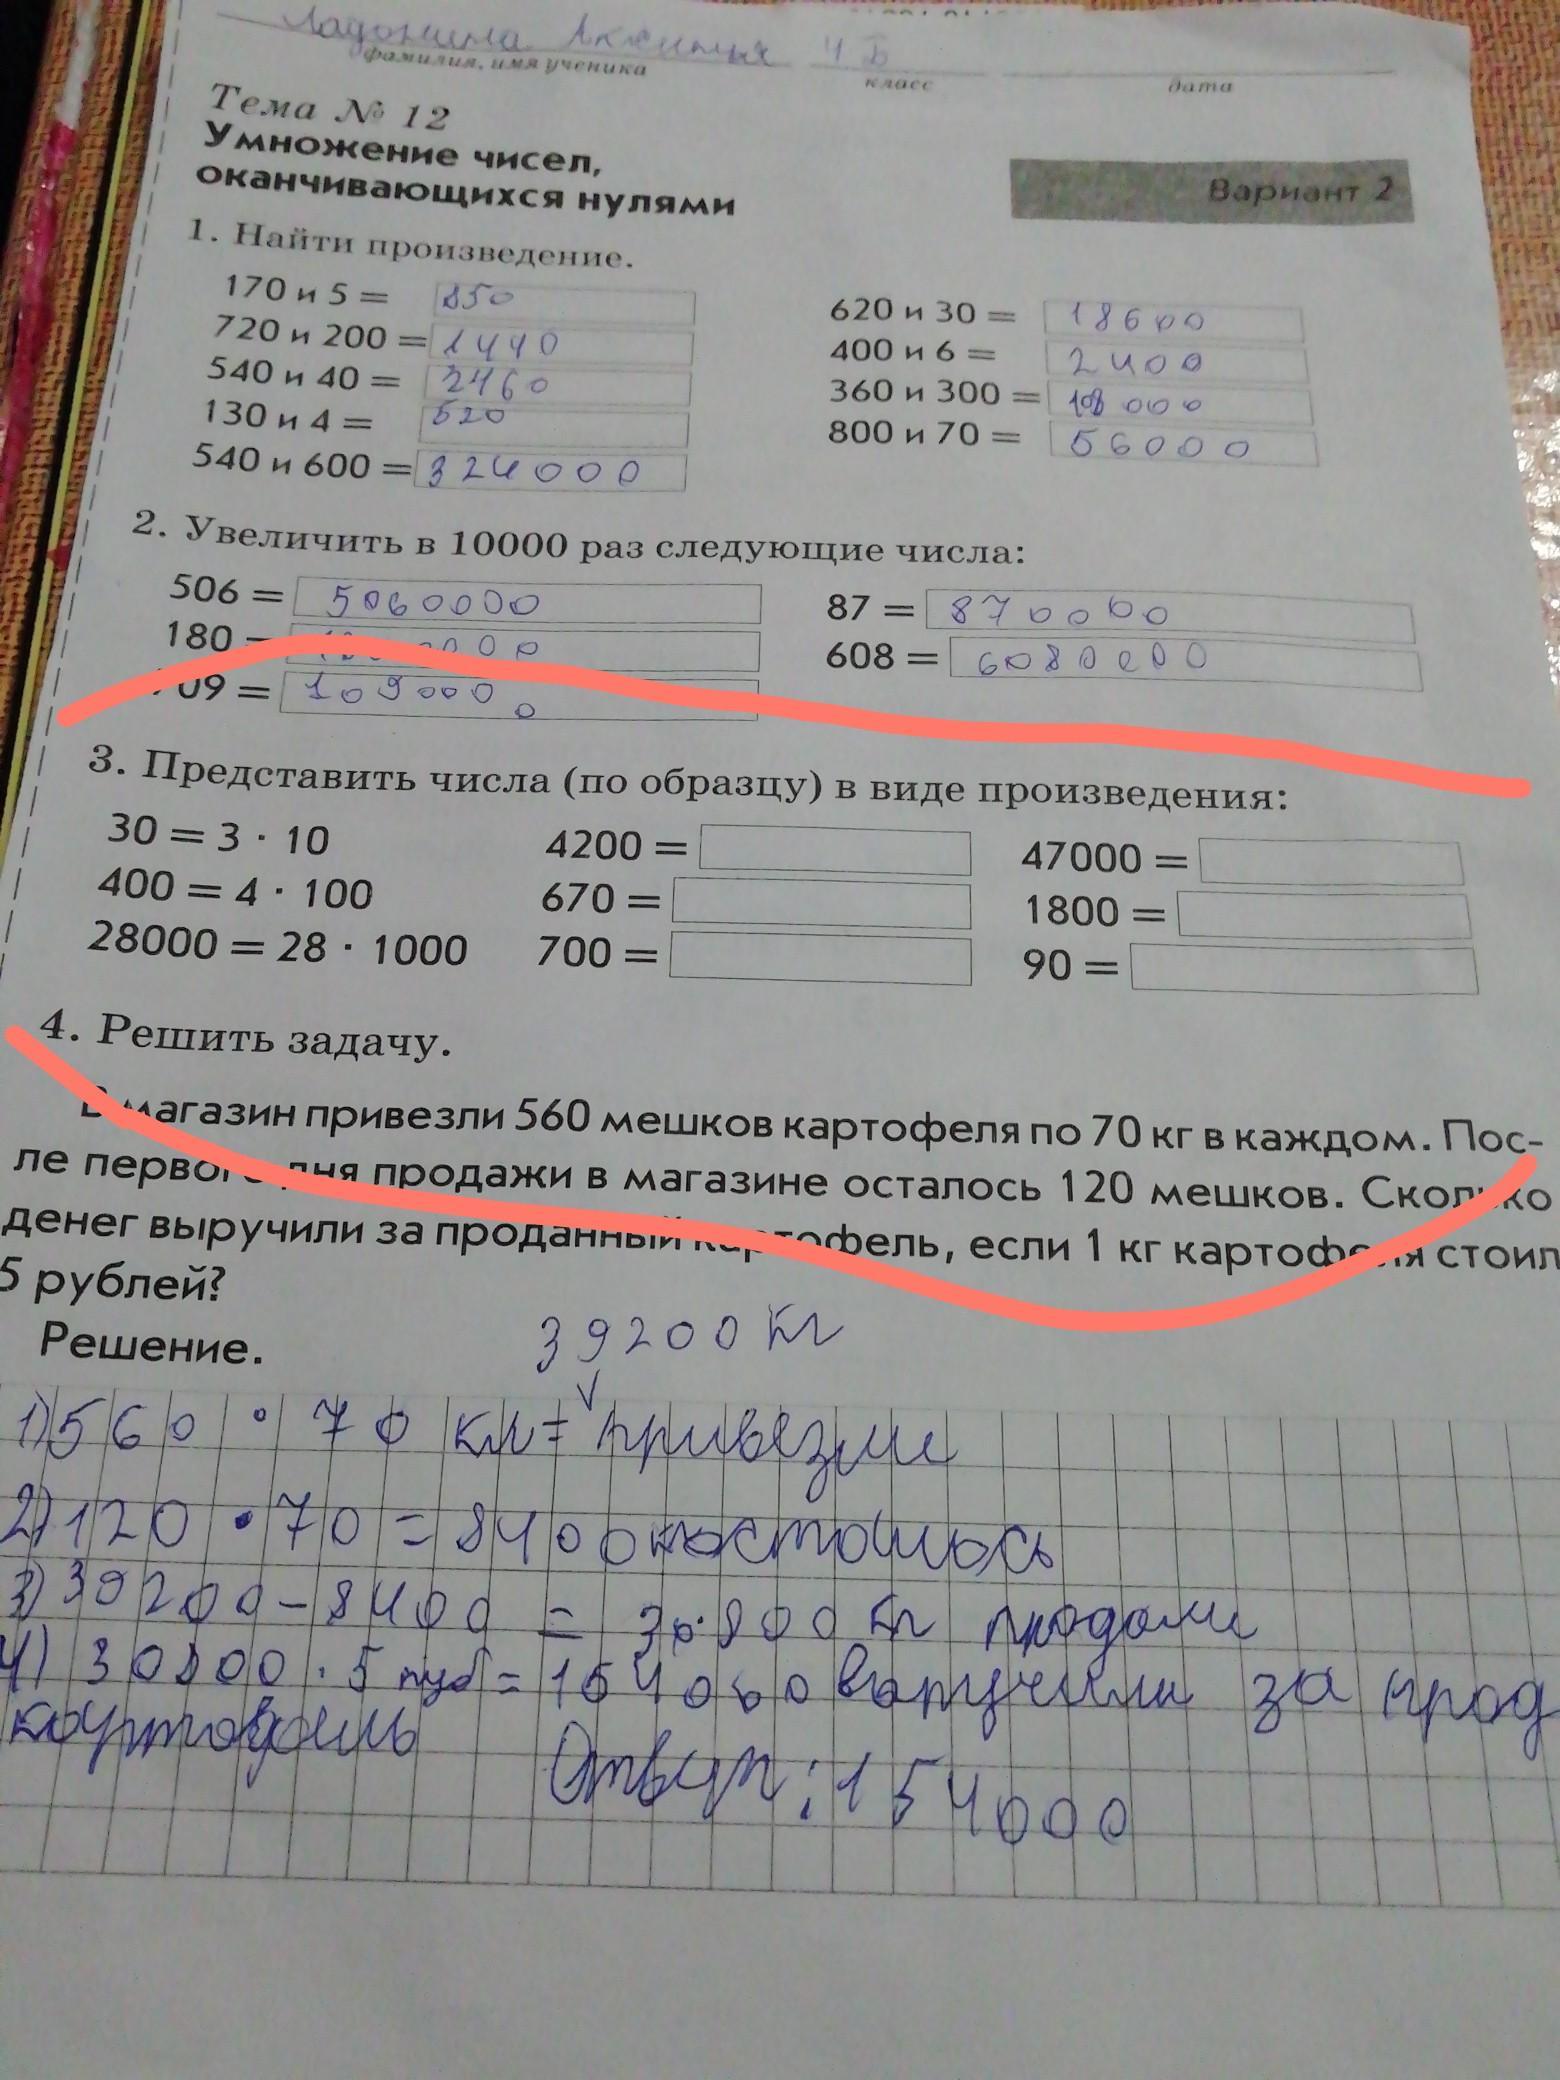 Ладонина Аксинья 4 Б
фамилия, имя ученика класс дата
Тема № 12
Умножение чисел,
оканчивающихся нулями
Вариант 2
1. Найти произведение.
170 и 5 = 850
720 и 200 = 1440
540 и 40 = 2460
130 и 4 = 520
540 и 600 = 324000
620 и 30 = 18600
400 и 6 = 2400
360 и 300 = 108000
800 и 70 = 56000
2. Увеличить в 10000 раз следующие числа:
506 = 5060000
180 =
09 = 1090000
87 = 870000
608 = 6080000
3. Представить числа (по образцу) в виде произведения:
30 = 3 · 10
400 = 4 · 100
28000 = 28 · 1000
4200 =
670 =
700 =
47000 =
1800 =
90 =
4. Решить задачу.
В магазин привезли 560 мешков картофеля по 70 кг в каждом. Пос-
ле первого дня продажи в магазине осталось 120 мешков. Сколько
денег выручили за проданный картофель, если 1 кг картофеля стоил
5 рублей?
Решение.
39200 кг
1) 560 · 70 кг = привезли
2) 120 · 70 = 8400 осталось
3) 39200 - 8400 = 30800 кг продали
4) 30800 · 5 руб = 154000 выручили за прод
картофель Ответ: 154000